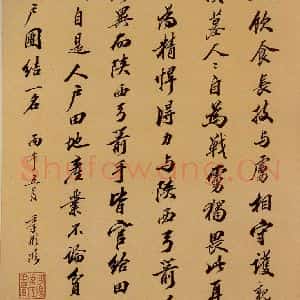 飲食長技与虜相守護親
墳墓人〻自為戰虜獨畏此耳
為精悍得力与陝西弓箭
異而陝西弓箭手皆官給田
自是人戶田地產業不論貧
戶團結一名 丙午五月
Shufawang.CN